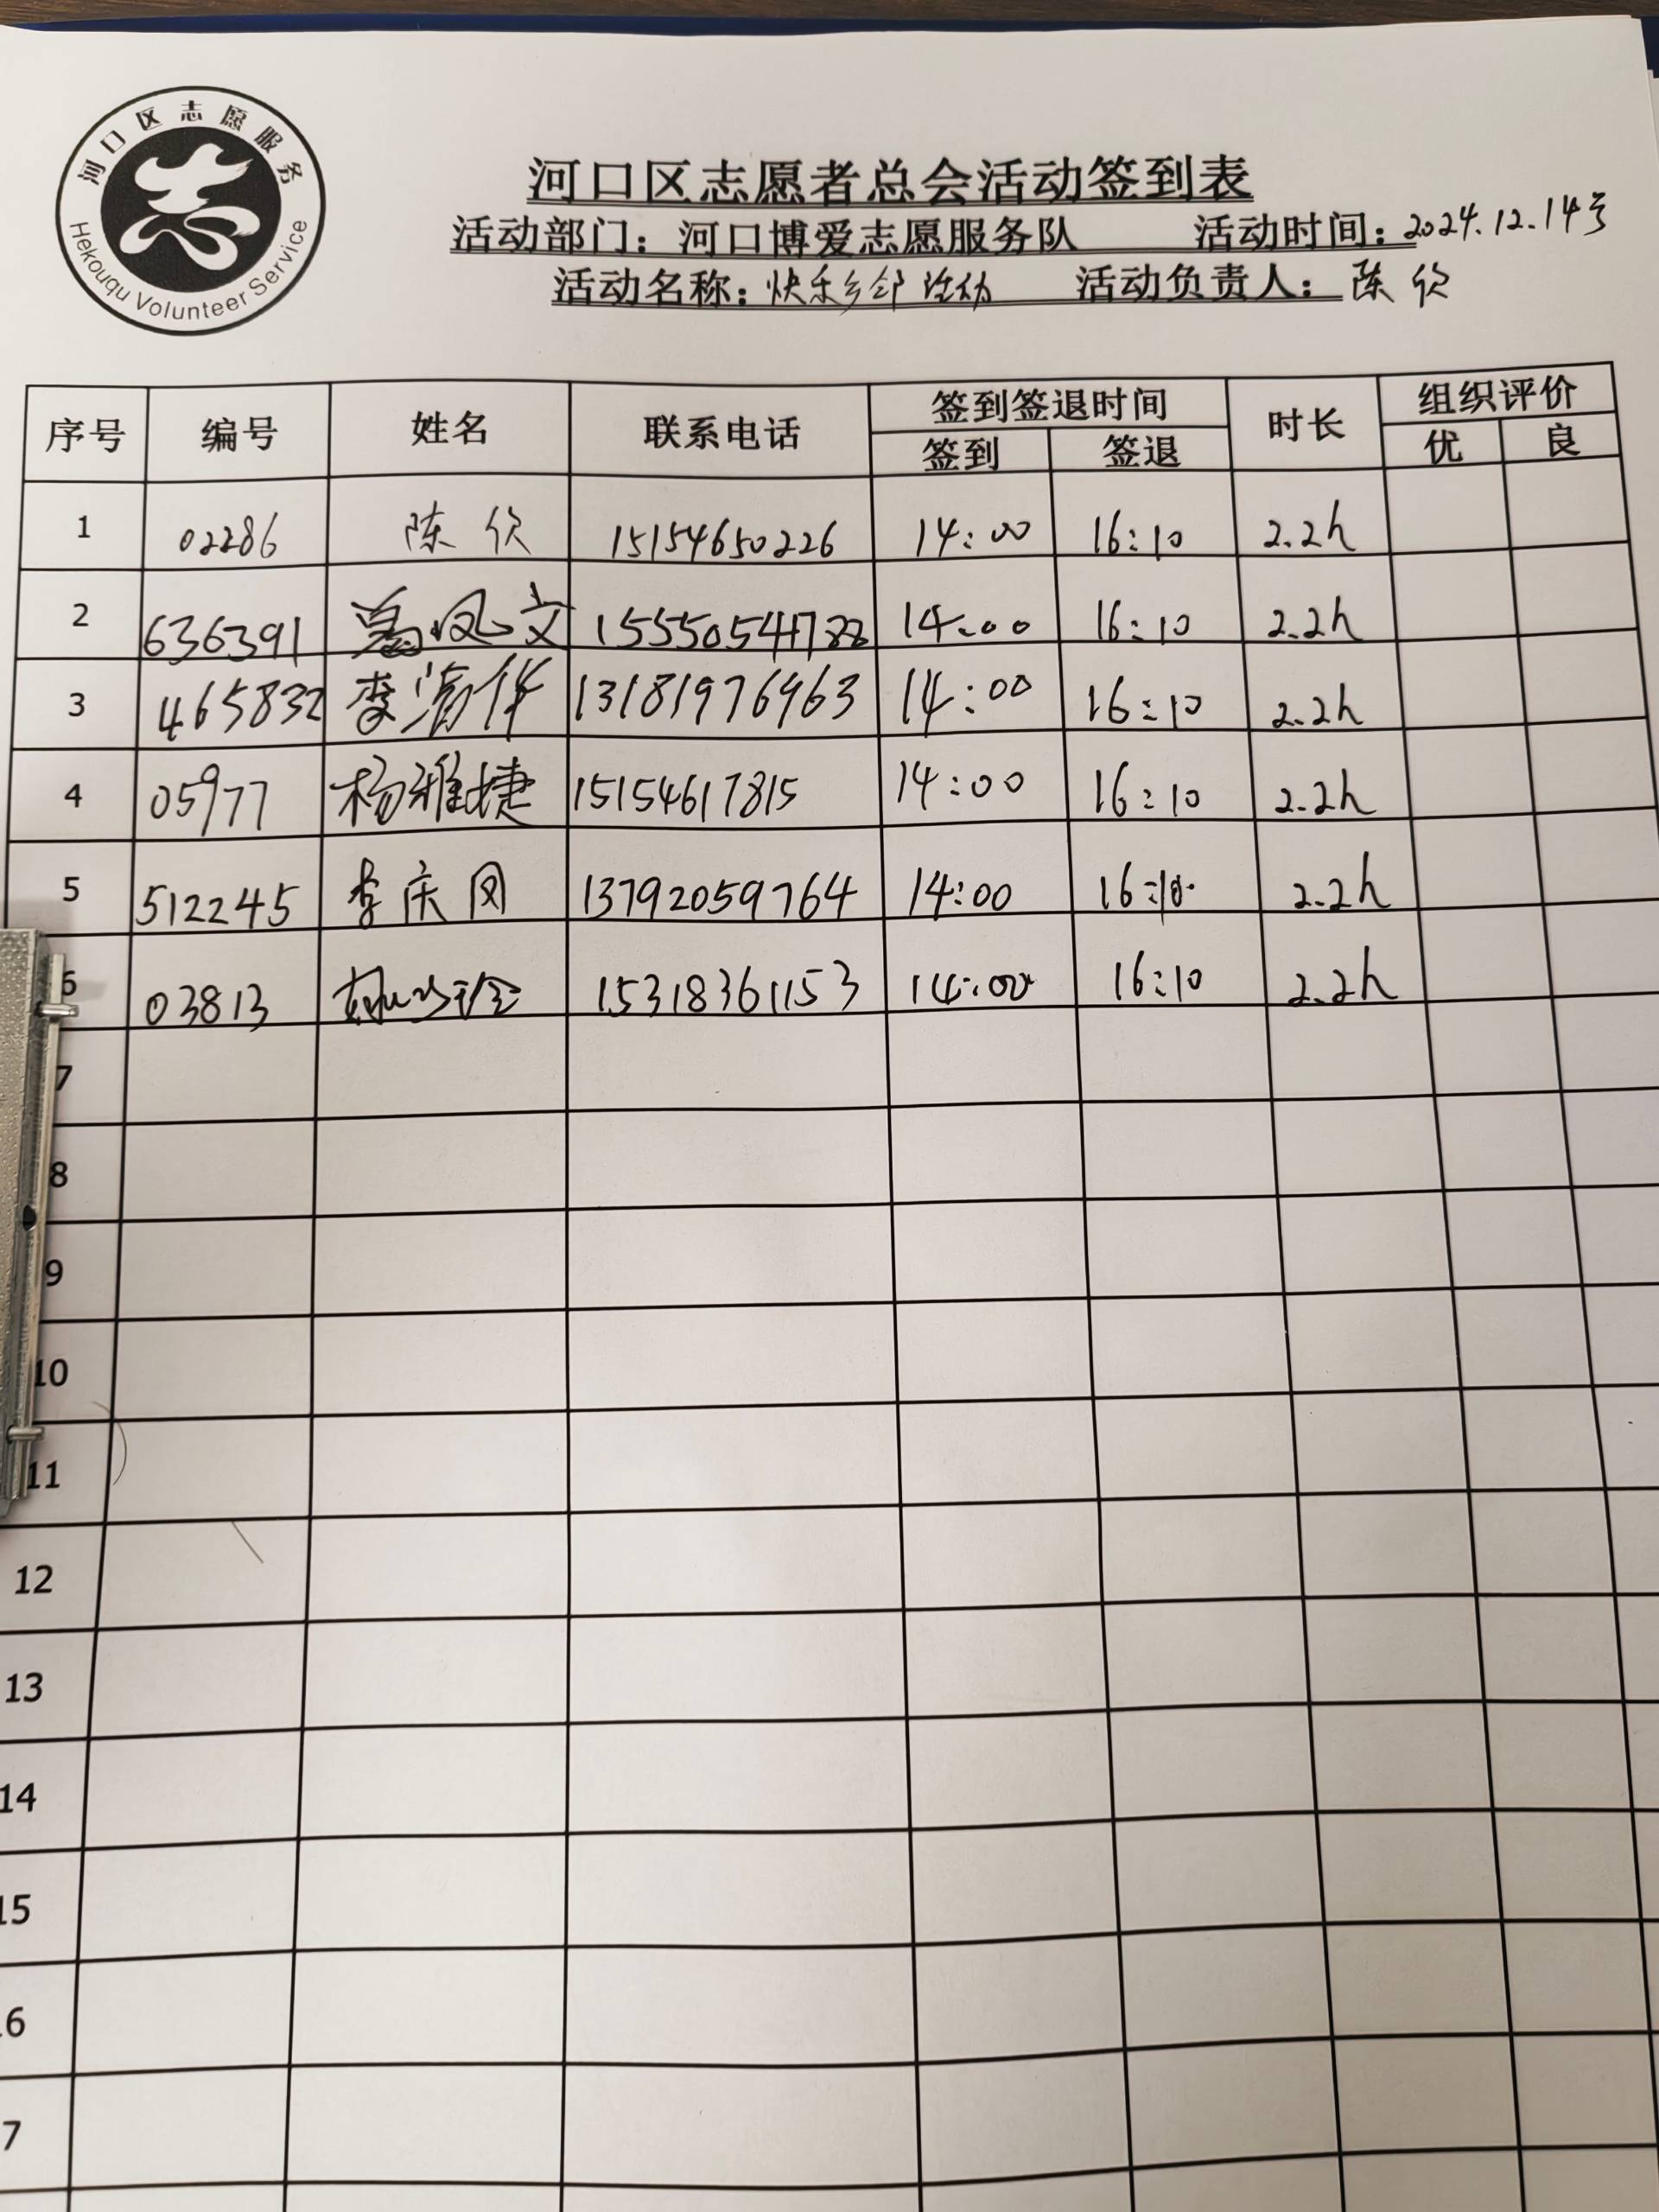 河口区志愿服务
Hekouqu Volunteer Service
河口区志愿者总会活动签到表
活动部门：河口博爱志愿服务队 活动时间：2024.12.14号
活动名称：快乐乡邻活动 活动负责人：陈欣
序号 编号 姓名 联系电话 签到签退时间 时长 组织评价
签到 签退 优 良
1 02286 陈欣 15154650226 14:00 16:10 2.2h
2 636391 凤文 15550541788 14:00 16:10 2.2h
3 465832 李 13181976963 14:00 16:10 2.2h
4 05977 杨雅捷 15154617815 14:00 16:10 2.2h
5 512245 李庆凤 13792059764 14:00 16:10 2.2h
6 03813 15318361153 14:00 16:10 2.2h
7
8
9
10
11
12
13
14
15
6
7